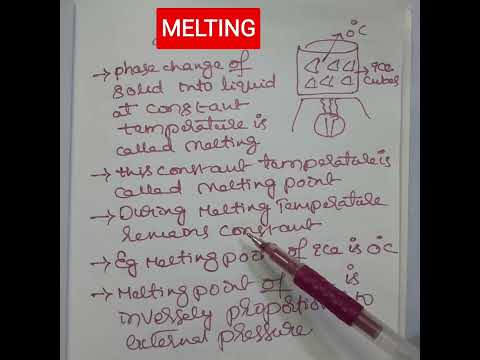 MELTING
0°C
→ phase change of
solid into liquid
at constant
temperature is
called melting
ice
cubes
→ this constant temperature is
called Melting point
→ During Melting Temperature
remains constant
→ Eg Melting point of ice is 0°C
→ Melting point of is
inversely proportion to
external pressure